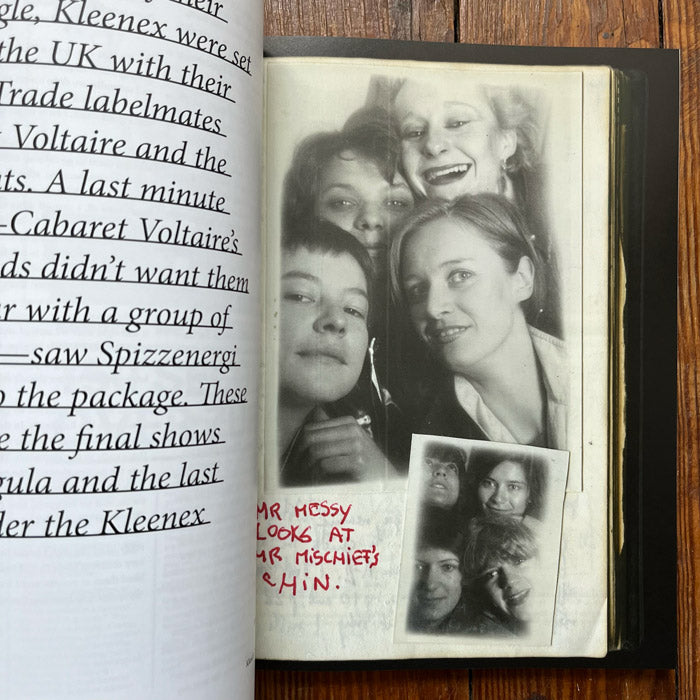 their
gle, Kleenex were set
the UK with their
Trade labelmates
Voltaire and the
ts. A last minute
—Cabaret Voltaire's
ds didn't want them
r with a group of
—saw Spizzenergi
o the package. These
e the final shows
gula and the last
der the Kleenex
MR MESSY
LOOKS AT
MR MISCHIEF'S
CHIN.